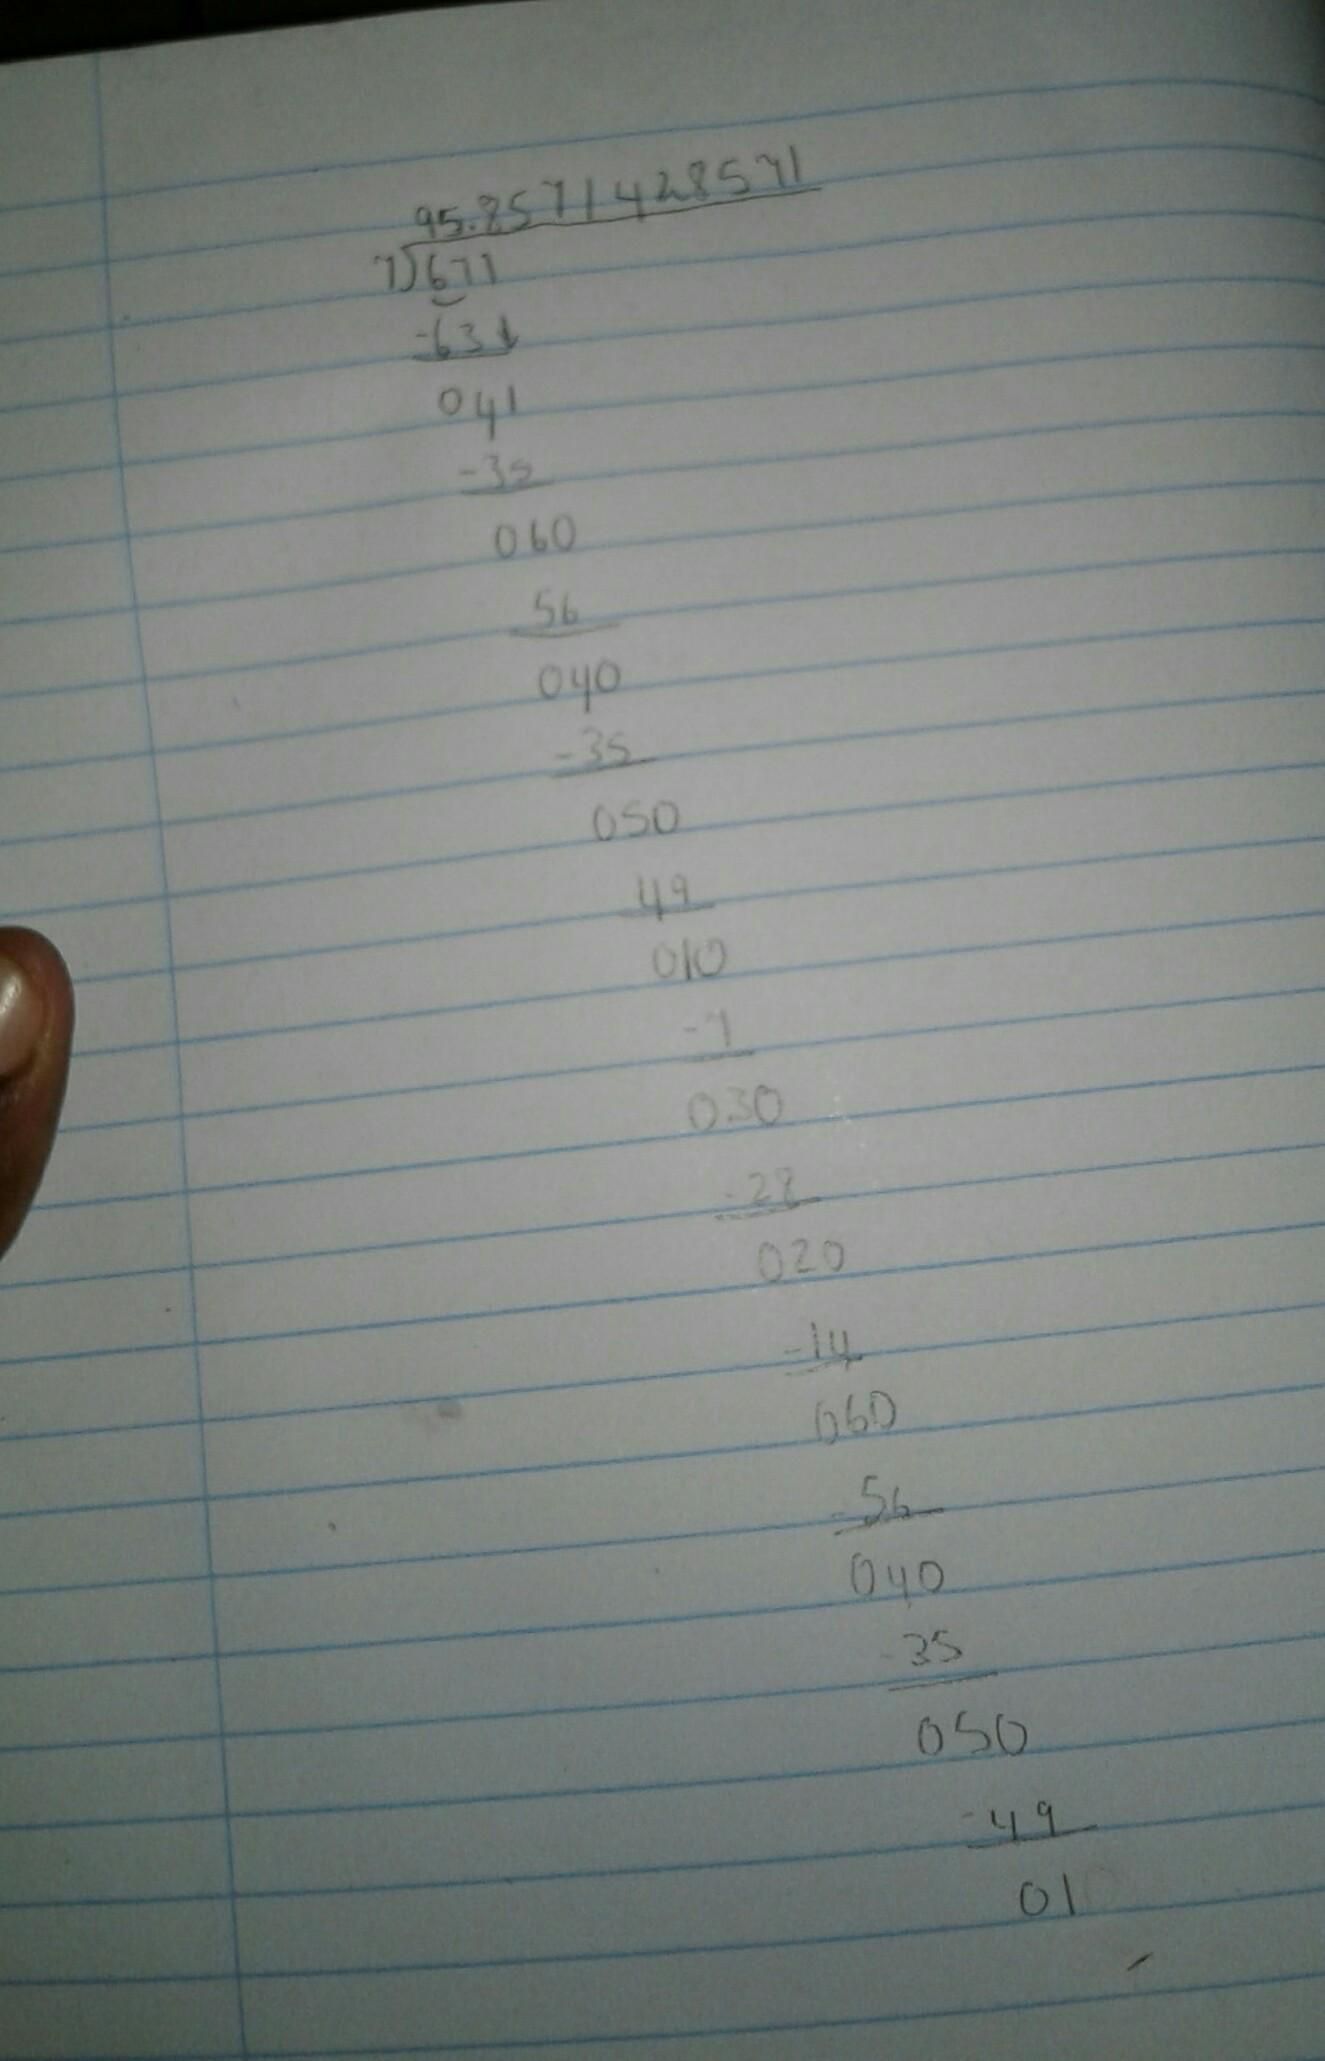 95.8571428571
7)671
-63↓
041
-35
060
56
040
-35
050
49
010
-7
030
-28
020
-14
060
-56
040
-35
050
-49
01